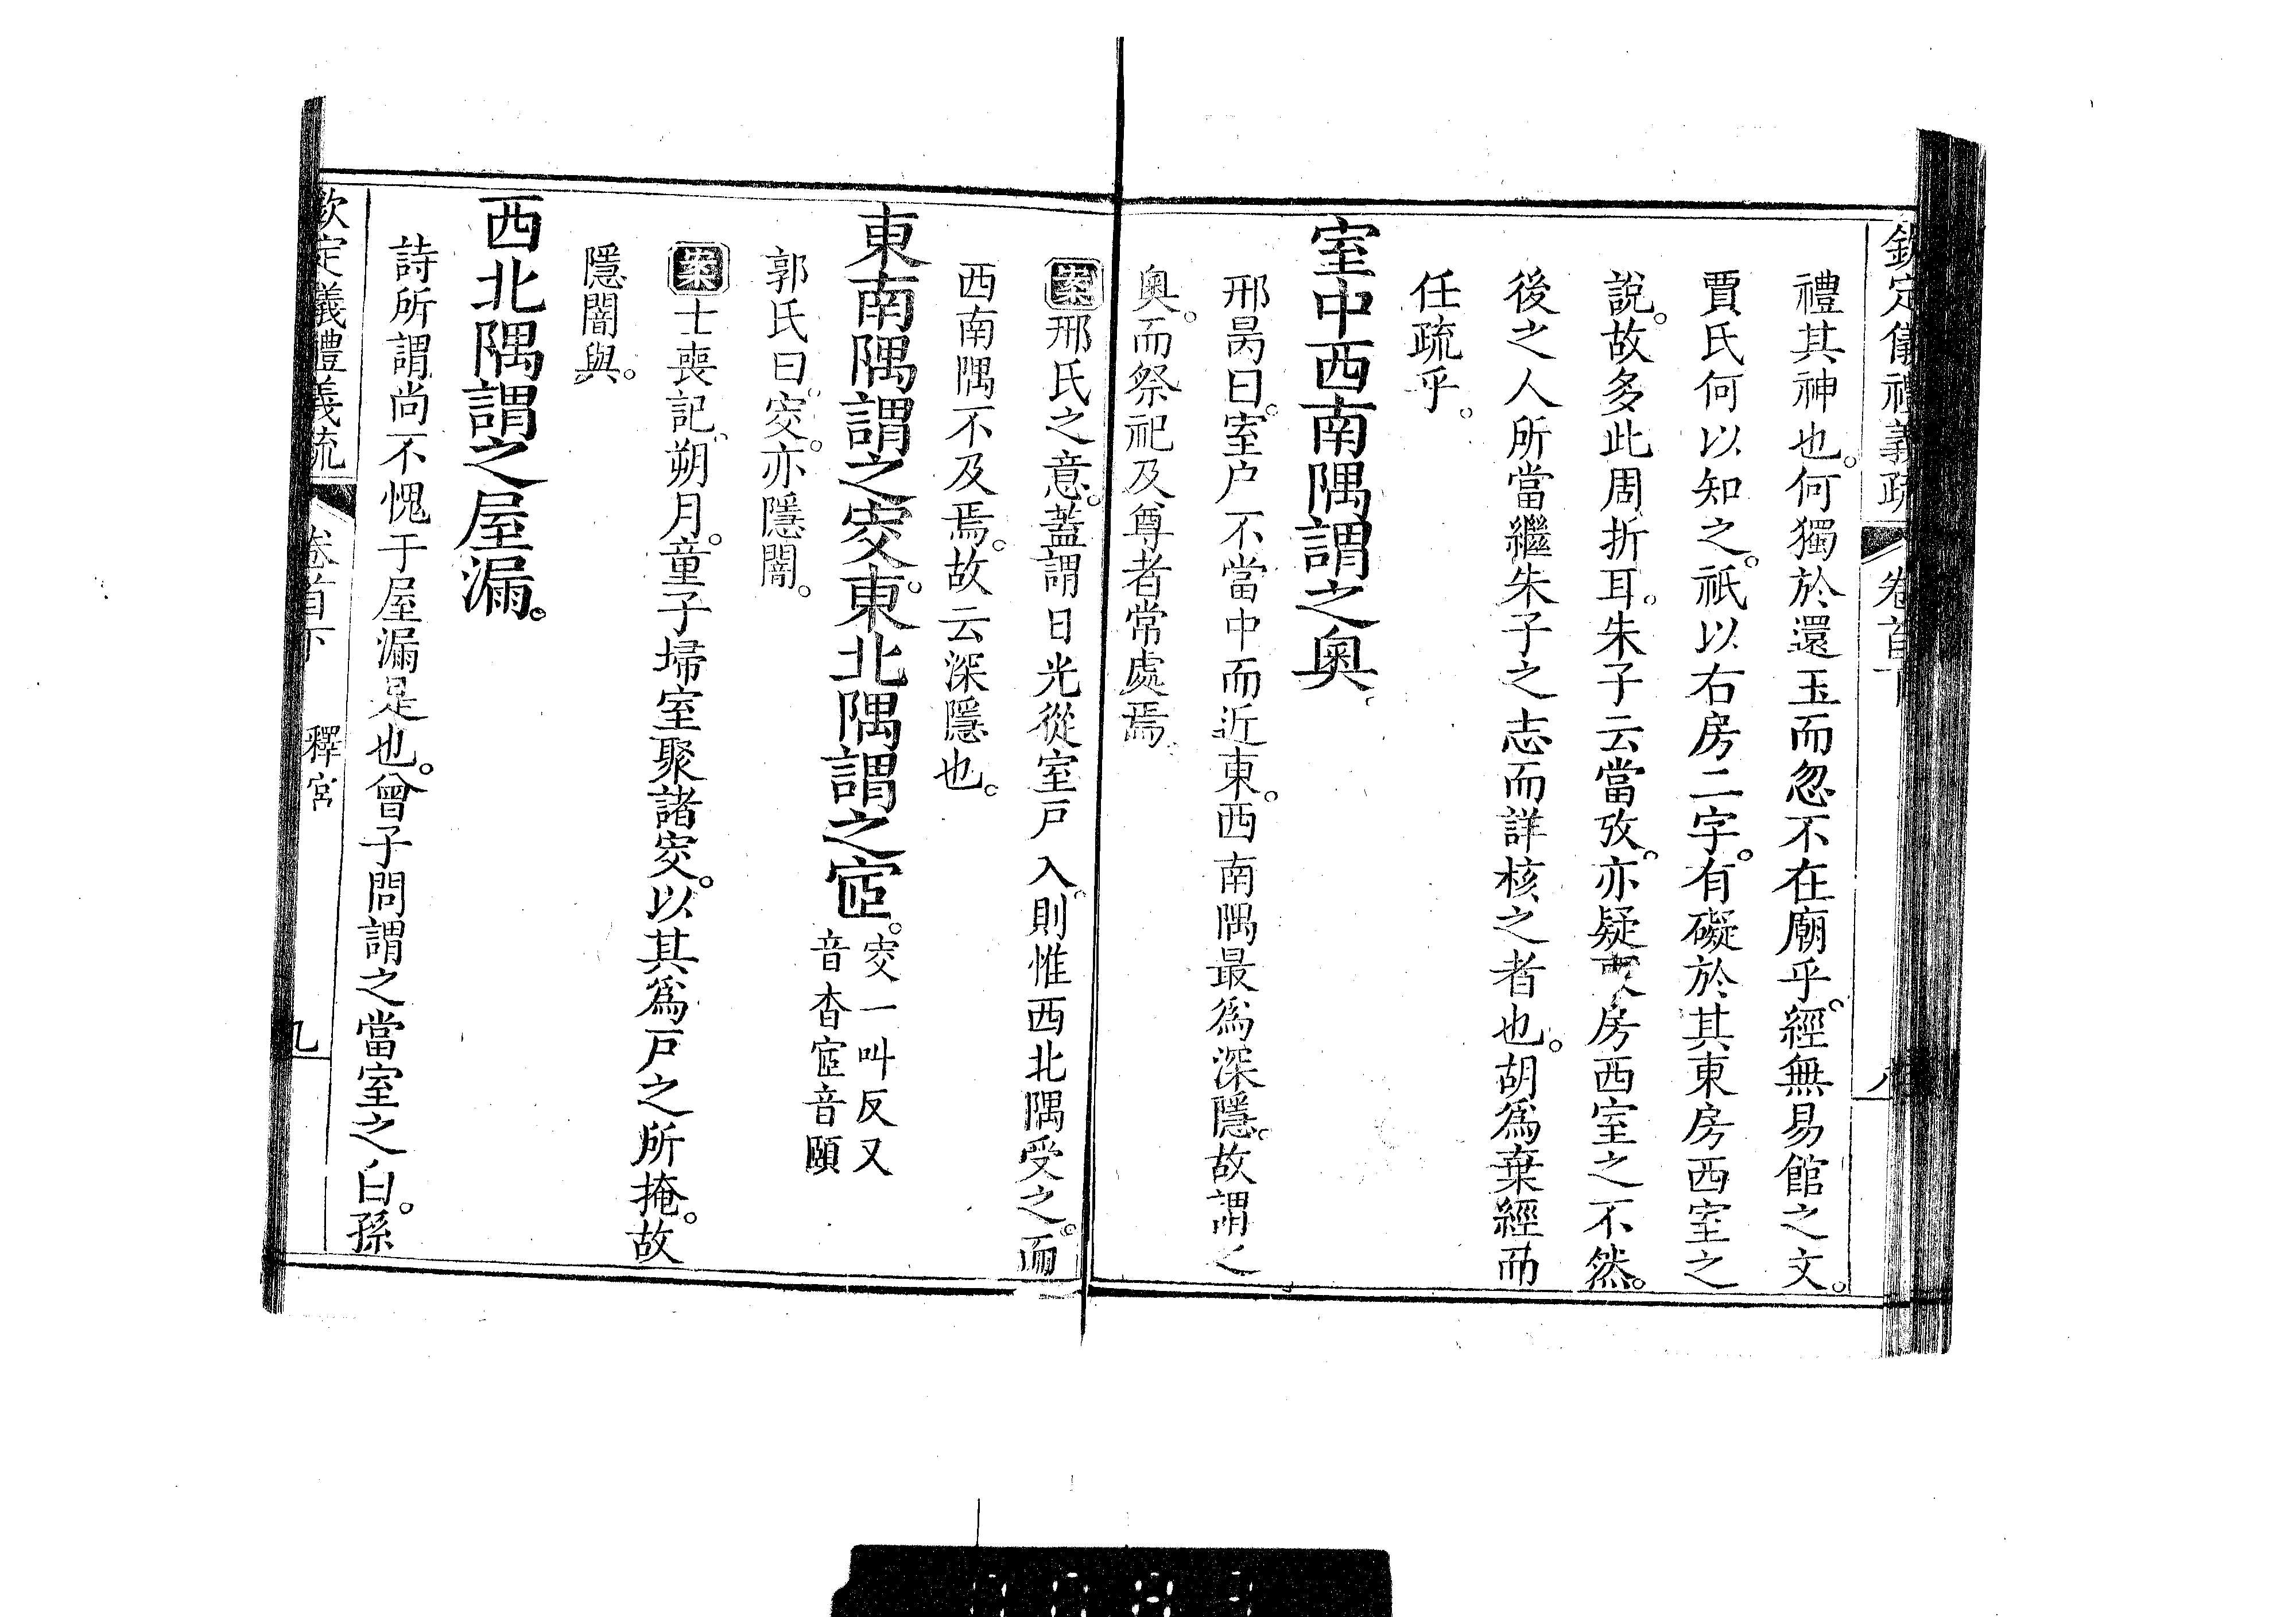 欽定儀禮義疏 卷首下 八
禮其神也。何獨於還玉而忽不在廟乎。經無易館之文。
賈氏何以知之。祇以右房二字。有礙於其東房西室之
說。故多此周折耳。朱子云當攷。亦疑 房西室之不然。
後之人所當繼朱子之志而詳核之者也。胡爲棄經而
任疏乎。
室中西南隅謂之奧。
邢昺曰。室户不當中而近東。西南隅最爲深隱。故謂之
奧。而祭祀及尊者常處焉。
案邢氏之意。蓋謂日光從室戸入。則惟西北隅受之。而
西南隅不及焉。故云深隱也。
東南隅謂之窔。東北隅謂之宧。
窔一叫反又
音杳宧音頤
郭氏曰。窔。亦隱闇。
案士喪記。朔月。童子埽室聚諸窔。以其爲戸之所掩。故
隱闇與。
西北隅謂之屋漏。
詩所謂尚不愧于屋漏是也。曾子問謂之當室之白。孫
欽定儀禮義疏 卷首下 釋宮 九